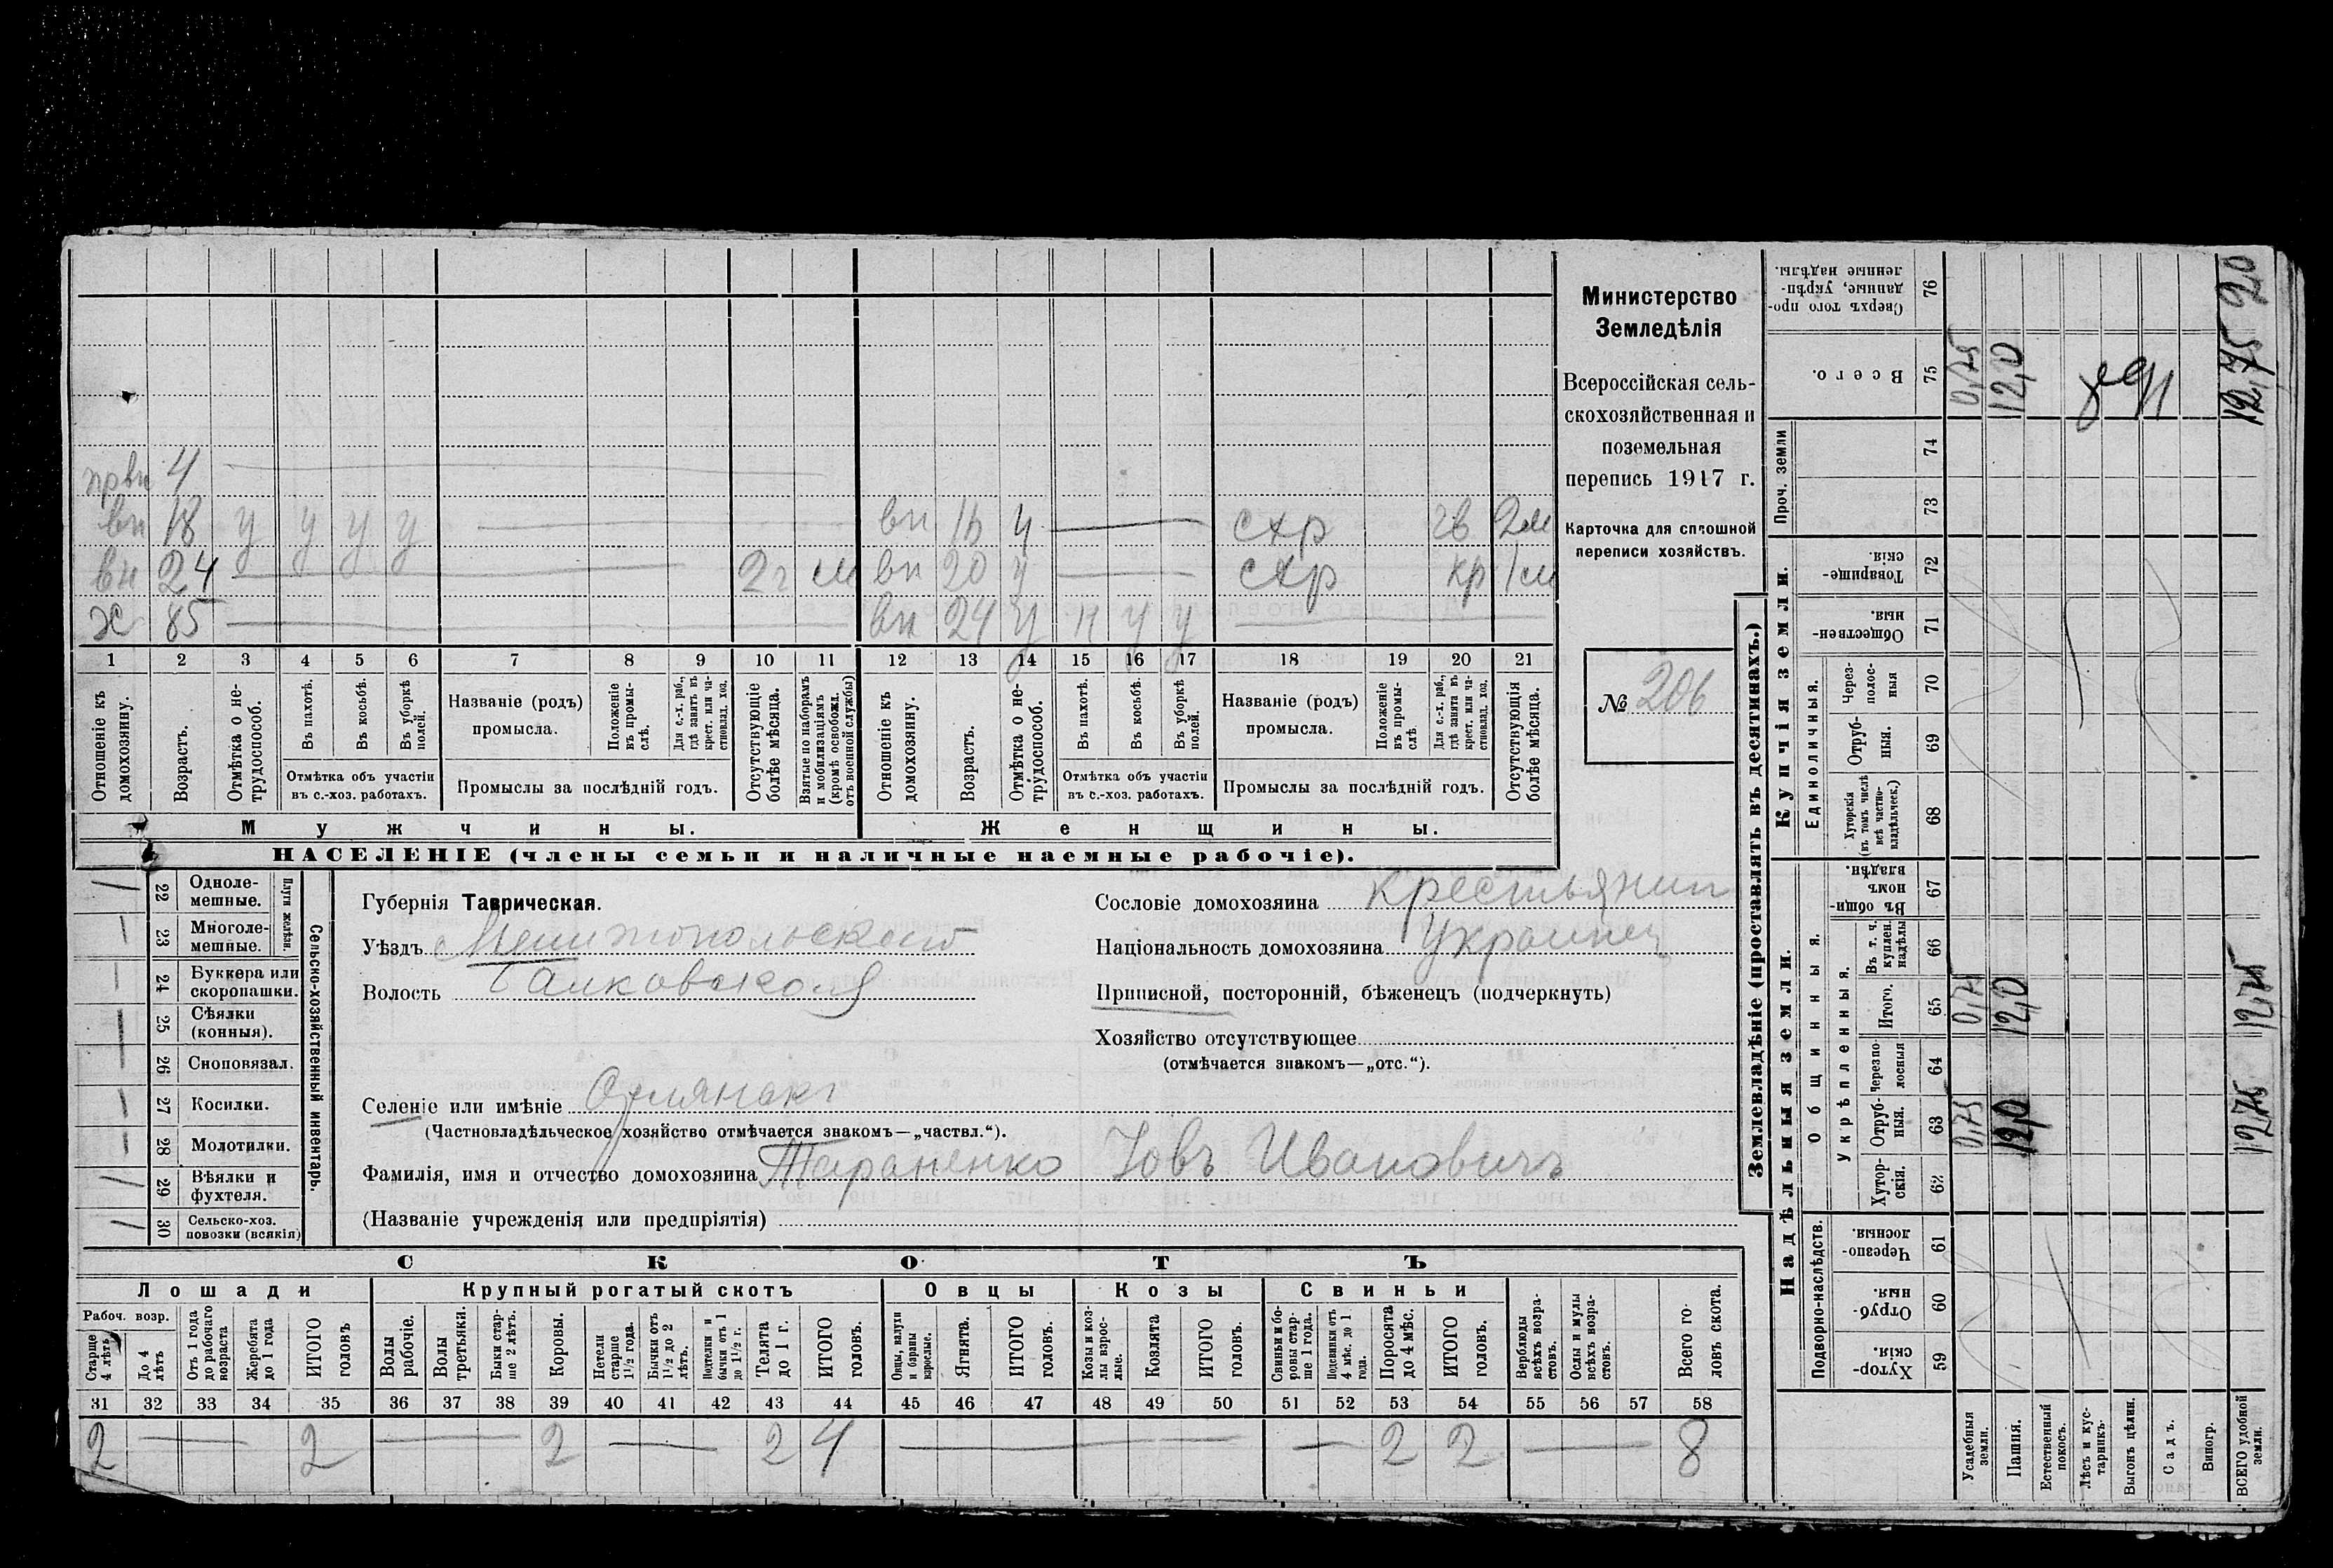 првн 4
вн 18 у у у у вн 16 ч схр 2м
вн 24 2г вн 20 у схр кр 1
х 85 вн 24 у н у у
1 2 3 4 5 6 7 8 9 10 11 12 13 14 15 16 17 18 19 20 21
Отношеніе къ домохозяину.
Возрастъ.
Отмѣтка о не-
трудоспособ.
Въ пахотѣ.
Въ косьбѣ.
Въ уборкѣ полей.
Отмѣтка объ участіи
въ с.-хоз. работахъ.
Названіе (родъ)
промысла.
Положеніе въ промы-
слѣ.
Для с.-х. раб.,
гдѣ занятъ въ
крест. или ча-
стновлад. хоз.
Промыслы за послѣдній годъ.
Отсутствующіе
болѣе мѣсяца.
Взятые по наборамъ
и мобилизаціямъ
(кромѣ освобожд.
отъ военной службы)
Отношеніе къ
домохозяину.
Возрастъ.
Отмѣтка о не-
трудоспособ.
Въ пахотѣ.
Въ косьбѣ.
Въ уборкѣ полей.
Отмѣтка объ участіи
въ с.-хоз. работахъ.
Названіе (родъ)
промысла.
Положеніе въ промы-
слѣ
Для с.-х. раб.,
гдѣ занята въ
крест. или ча-
стновлад. хоз.
Промыслы за послѣдній годъ.
Отсутствующія
болѣе мѣсяца.
Мужчины.
Женщины.
НАСЕЛЕНІЕ (члены семьи и наличные наемные рабочіе).
Министерство
Земледѣлія
Всероссійская сель-
скохозяйственная и
поземельная
перепись 1917 г.
Карточка для сплошной
переписи хозяйствъ.
№ 206
22 Одноле-
мешные.
23 Многоле-
мешные.
Плуги желѣзн.
24 Буккера или
скоропашки.
25 Сѣялки
(конныя).
26 Сноповязал.
27 Косилки.
28 Молотилки.
29 Вѣялки и
фухтеля.
30 Сельско-хоз.
повозки (всякія)
Сельско-хозяйственный инвентарь.
Губернія Таврическая.
Уѣздъ
Волость
Селеніе или имѣніе
(Частновладѣльческое хозяйство отмѣчается знакомъ—„частвл.“).
Фамилія, имя и отчество домохозяина Тараненко Іовъ Ивановичъ
(Названіе учрежденія или предпріятія)
Сословіе домохозяина крестьянин
Національность домохозяина Украинец
Приписной, посторонній, бѣженецъ (подчеркнуть)
Хозяйство отсутствующее
(отмѣчается знакомъ—„отс.“).
СКОТЪ
Лошади Крупный рогатый скотъ Овцы Козы Свиньи
Рабоч. возр.
Старше
4 лѣтъ
До 4
лѣтъ
Отъ 1 года
до рабочаго
возраста
Жеребята
до 1 года
ИТОГО
головъ
Волы
рабочіе.
Волы
третьяки.
Быки стар-
ше 2 лѣтъ.
Коровы.
Нетели
старше
1½ года.
Бычки отъ
1½ до 2
лѣтъ.
Подтелки и
бычки отъ 1
до 1½ г.
Телята
до 1 г.
ИТОГО
головъ.
Овцы, валухи
и бараны
взрослые.
Ягнята.
ИТОГО
головъ.
Козы и коз-
лы взрос-
лые.
Козлята
ИТОГО
головъ.
Свиньи и бо-
ровы стар-
ше 1 года.
Подсвинки отъ
4 мѣс. до 1
года.
Поросята
до 4 мѣс.
ИТОГО
головъ.
Верблюды
всѣхъ возра-
стовъ.
Ослы и мулы
всѣхъ возра-
стовъ.
Всего го-
ловъ скота.
31 32 33 34 35 36 37 38 39 40 41 42 43 44 45 46 47 48 49 50 51 52 53 54 55 56 57 58
2 2 2 2 4 2 2 8
Землевладѣніе (проставлять въ десятинахъ.)
Надѣльныя земли.
Купчія земли.
Проч. земли
Подворно-наслѣдств.
Общинныя.
Укрѣпленныя.
Единоличныя.
Сверхъ того про-
данные, укрѣп-
ленные надѣлы.
Всего.
Товарище-
скія.
Обществен-
ныя.
Через-
полос-
ныя
Отруб-
ныя.
Хуторскія
(въ томъ числѣ
всѣ частно-
владѣльческ.)
Въ общин-
номъ
владѣн.
Въ т. ч.
куплен.
надѣлы
Итого.
Черезпо-
лосныя
Отруб-
ныя.
Хутор-
скія.
Черезпо-
лосныя.
Отруб-
ныя.
Хутор-
скія.
76 75 74 73 72 71 70 69 68 67 66 65 64 63 62 61 60 59
0,75 0,75 0,75
12,0 12,0 12,0
12,75 12,75 12,75
Усадебныя
земли.
Пашня.
Естественный
покосъ.
Лѣсъ и кус-
тарникъ.
Выгонъ цѣлин.
Садъ.
Виногр.
ВСЕГО удобной
земли.